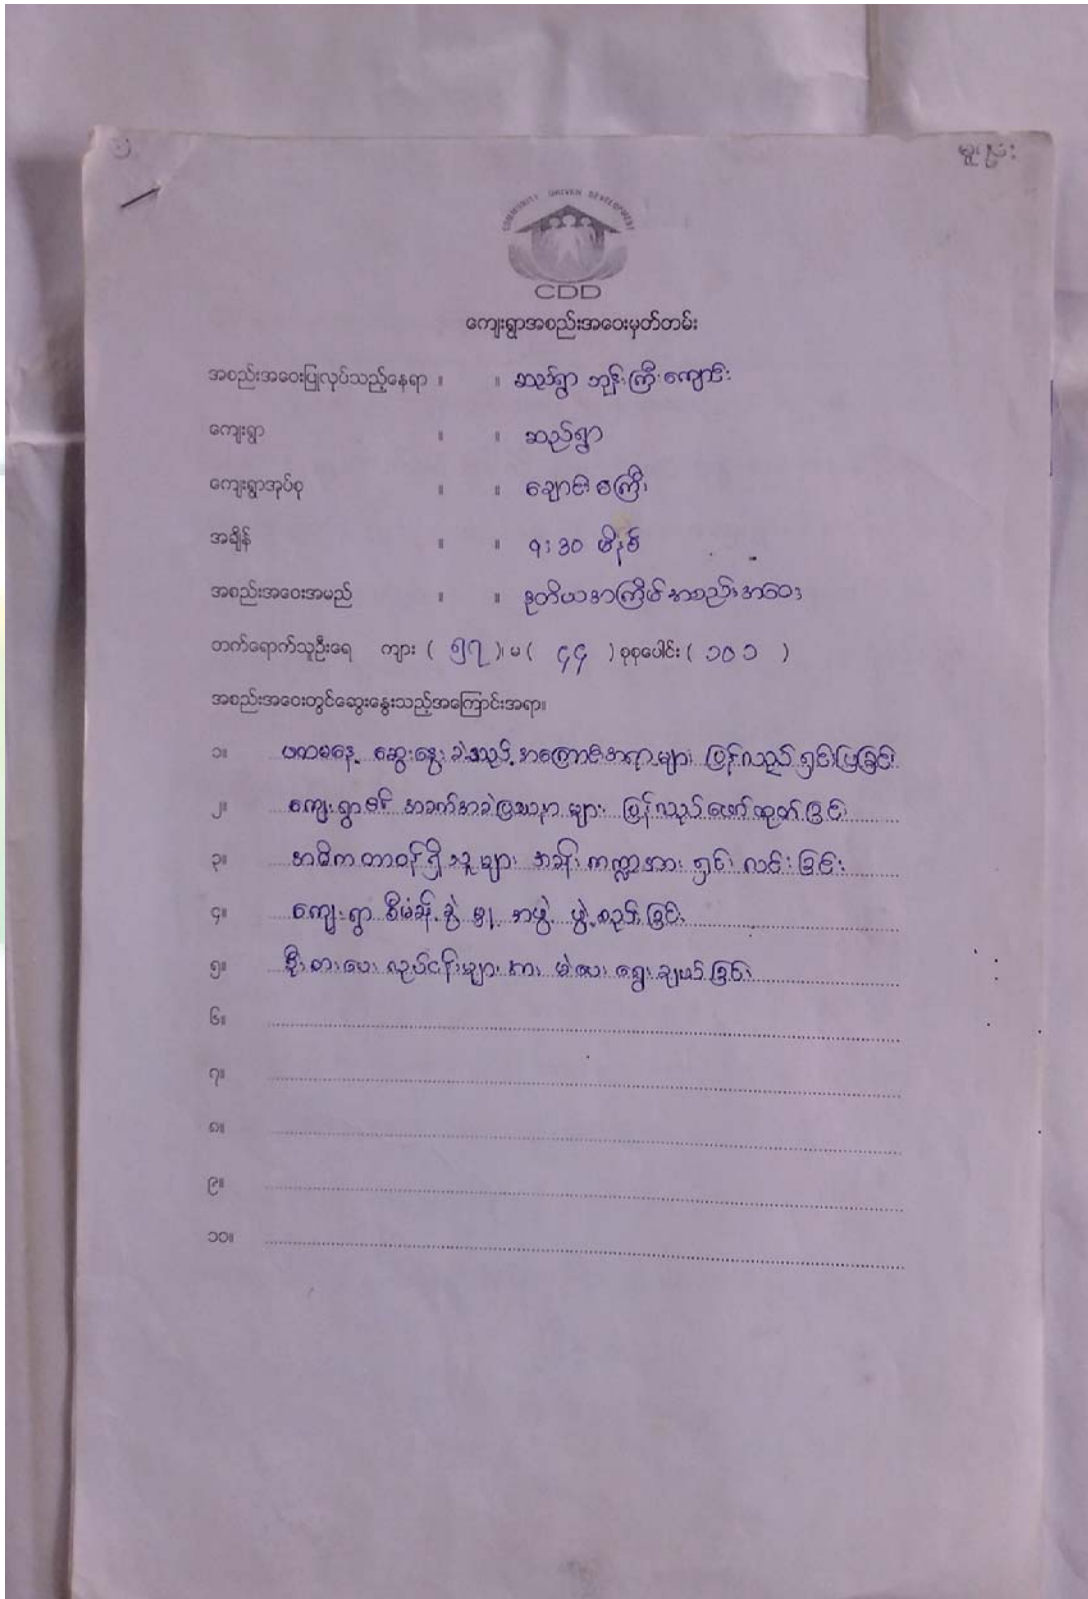 မူရင်း
COMMUNITY DRIVEN DEVELOPMENT
CDD
ကျေးရွာအစည်းအဝေးမှတ်တမ်း
အစည်းအဝေးပြုလုပ်သည့်နေရာ ။ ။ ဆည်ရွာ ဘုန်းကြီးကျောင်း
ကျေးရွာ ။ ။ ဆည်ရွာ
ကျေးရွာအုပ်စု ။ ။ ချောင်းစကြီး
အချိန် ။ ။ ၇:30 မိနစ်
အစည်းအဝေးအမည် ။ ။ ဒုတိယအကြိမ်အစည်းအဝေး
တက်ရောက်သူဦးရေ ကျား ( ၅၇ )၊ မ ( ၄၄ ) စုစုပေါင်း ( ၁၀၁ )
အစည်းအဝေးတွင်ဆွေးနွေးသည့်အကြောင်းအရာ။
၁။ ပထမနေ့ ဆွေးနွေးခဲ့သည့် အကြောင်းအရာများ ပြန်လည်ရှင်းပြခြင်း
၂။ ကျေးရွာ၏ အခက်အခဲပြဿနာများ ပြန်လည်ဖော်ထုတ်ခြင်း
၃။ အဓိကတာဝန်ရှိသူများ အခန်းကဏ္ဍအား ရှင်းလင်းခြင်း
၄။ ကျေးရွာ စီမံခန့်ခွဲမှု အဖွဲ့ ဖွဲ့စည်းခြင်း
၅။ ဦးစားပေးလုပ်ငန်းများအား မဲပေးရွေးချယ်ခြင်း
၆။
၇။
၈။
၉။
၁၀။